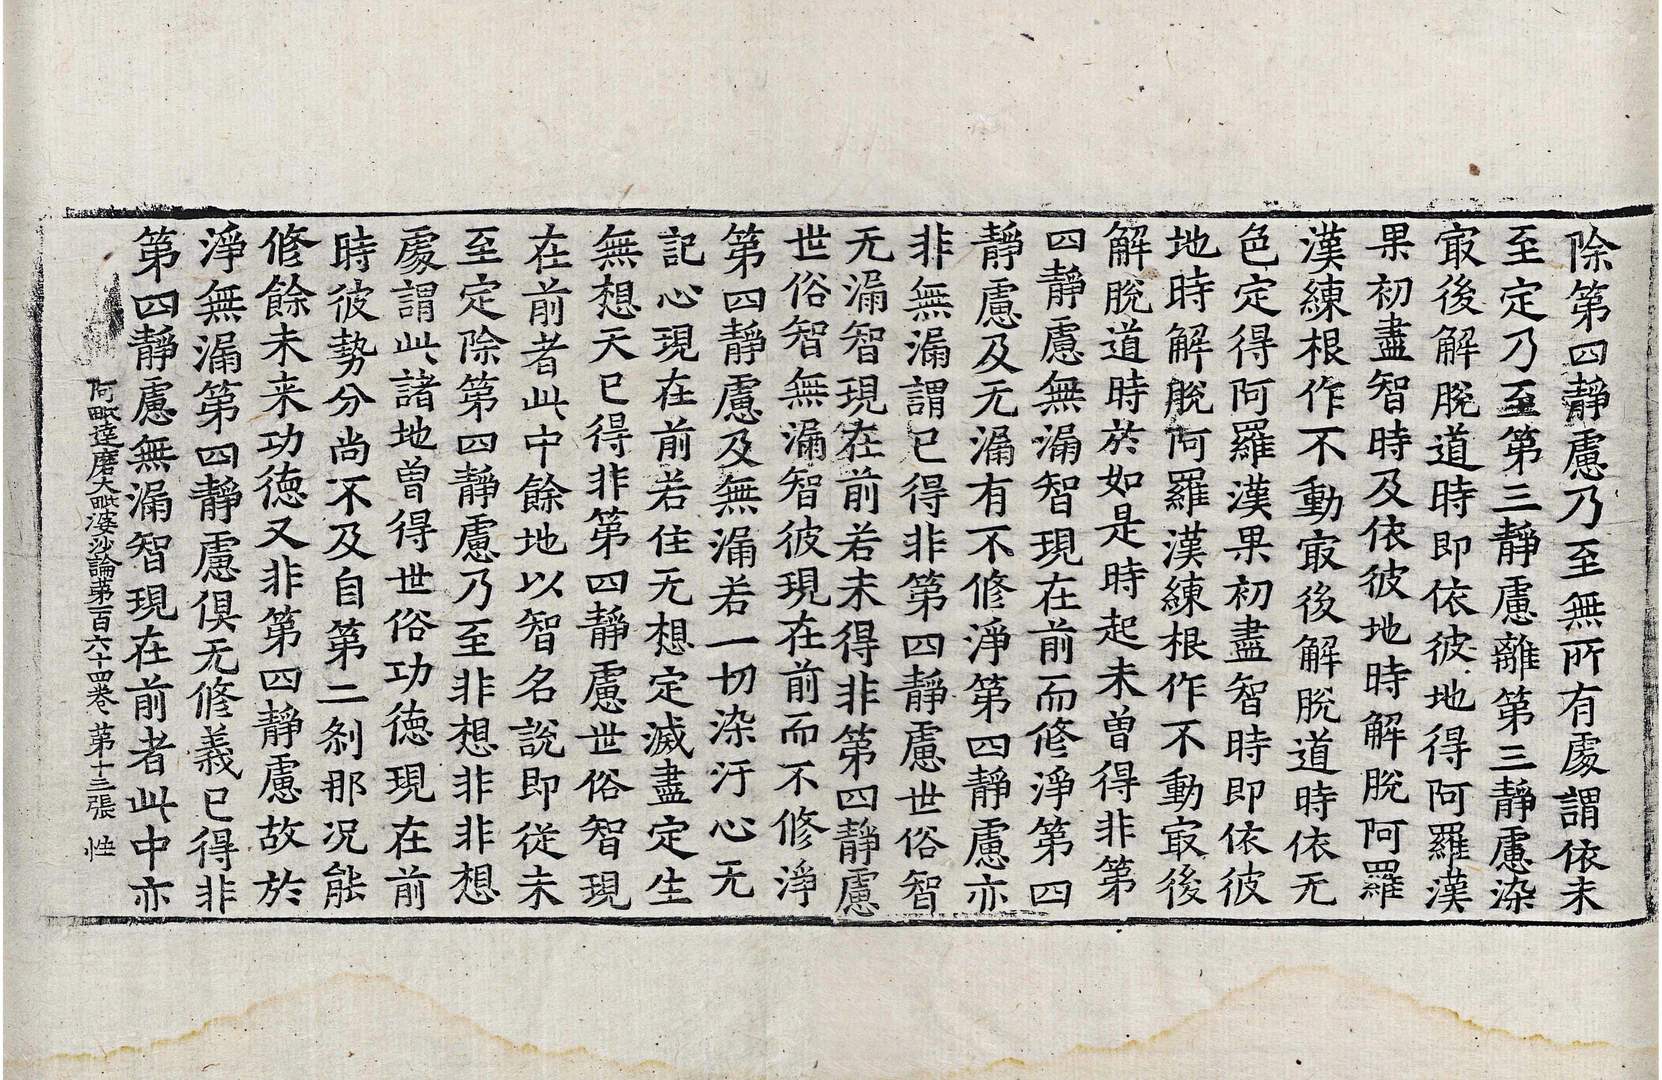 除第四靜慮乃至無所有處謂依未
至定乃至第三靜慮離第三靜慮染
㝡後解脫道時即依彼地得阿羅漢
果初盡智時及依彼地時解脫阿羅
漢練根作不動㝡後解脫道時依无
色定得阿羅漢果初盡智時即依彼
地時解脫阿羅漢練根作不動㝡後
解脫道時於如是時起未曾得非第
四靜慮無漏智現在前而修淨第四
靜慮及无漏有不修淨第四靜慮亦
非無漏謂已得非第四靜慮世俗智
无漏智現在前若未得非第四靜慮
世俗智無漏智彼現在前而不修淨
第四靜慮及無漏若一切染汙心无
記心現在前若住无想定滅盡定生
無想天已得非第四靜慮世俗智現
在前者此中餘地以智名說即從未
至定除第四靜慮乃至非想非非想
處謂此諸地曾得世俗功德現在前
時彼勢分尚不及自第二剎那况能
修餘未来功德又非第四靜慮故於
淨無漏第四靜慮俱无修義已得非
第四靜慮無漏智現在前者此中亦
阿毗達磨大毗婆沙論第一百六十四卷 第十三張 性